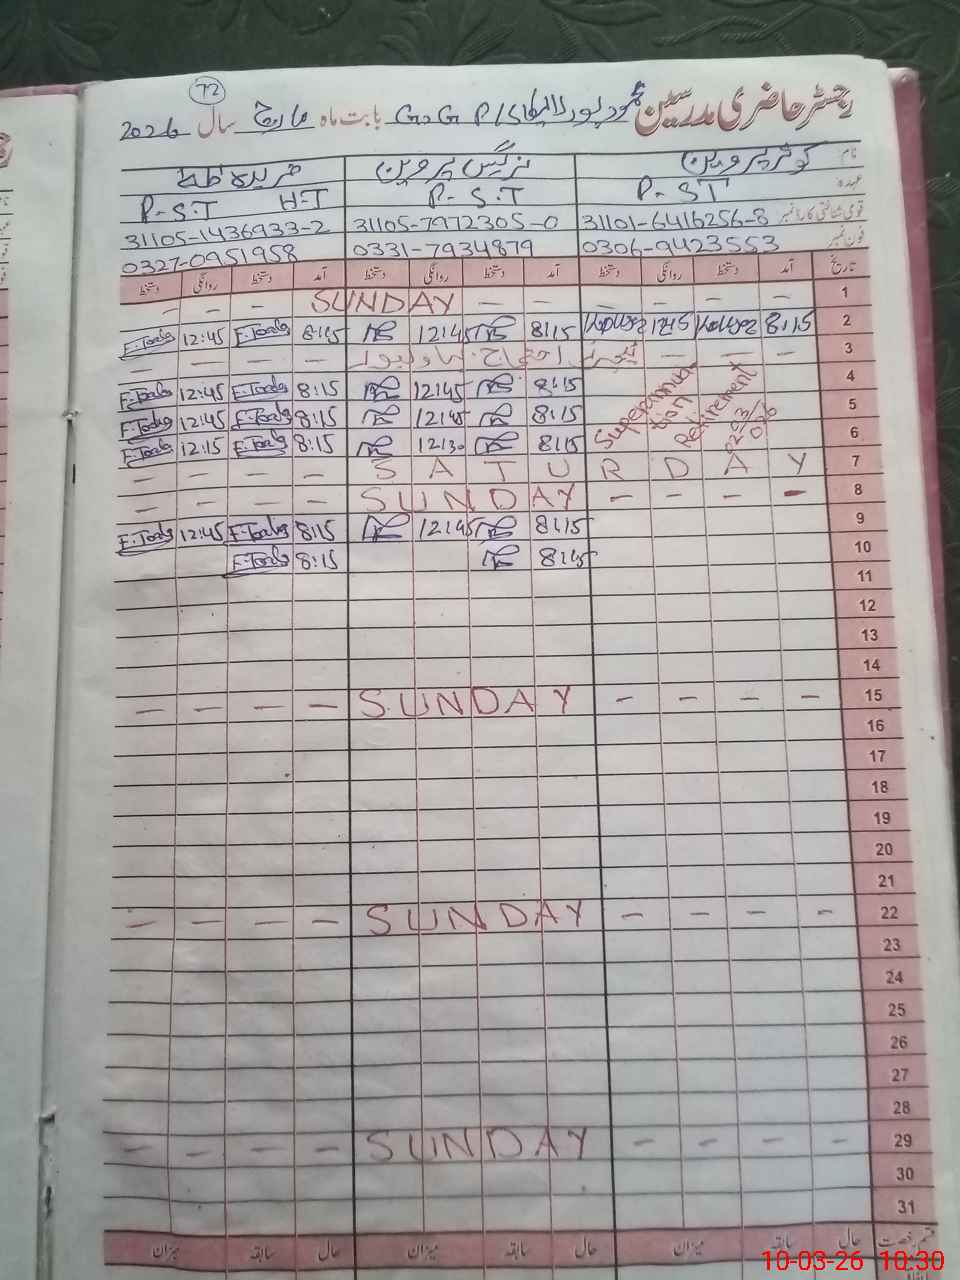 72
رجسٹر حاضری مدرسین G.G.P/S بابت ماہ مارچ سال 2026
نام کوثر پروین نرگس پروین
عہدہ P-ST P-S.T P-S.T H-T
قومی شناختی کارڈ نمبر 31101-6416256-8 31105-7972305-0 31105-1436933-2
فون نمبر 0306-9423553 0331-7934879 0327-0951958
تاریخ آمد دستخط روانگی دستخط آمد دستخط روانگی دستخط آمد دستخط روانگی دستخط
1 — — — — — — SUNDAY — — —
2 8:15 Kausar 12:15 Kausar 8:15 12:45 8:15 12:45
3 — — — —
4 8:15 12:45 8:15 12:45
5 8:15 12:45 8:15 12:45
6 8:15 12:30 8:15 12:15
Superannuation
Retirement
02-03
026
7 — — — — SATURDAY
8 — — — — SUNDAY — — — —
9 8:15 12:45 8:15 12:45
10 8:15 8:15
11
12
13
14
15 — — — — SUNDAY — — — —
16
17
18
19
20
21
22 — — — — SUNDAY — — — —
23
24
25
26
27
28
29 — — — — SUNDAY — — — —
30
31
قسم رخصت حال سابقہ میزان حال سابقہ میزان حال سابقہ میزان
10-03-26 10:30